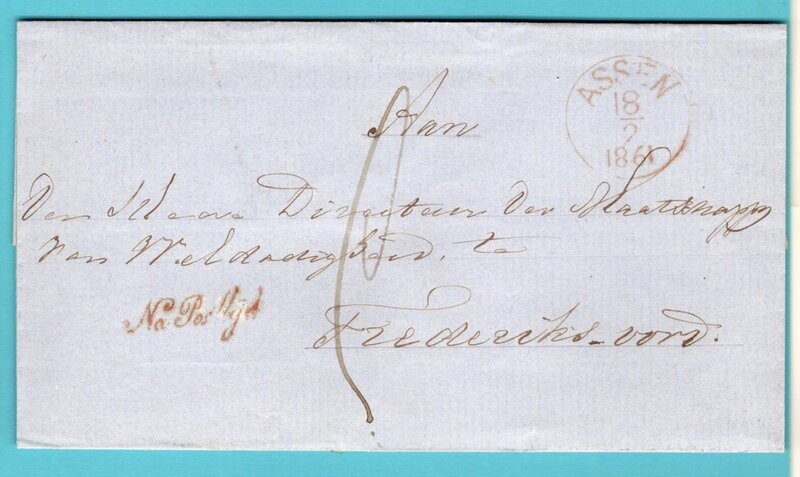 ASSEN
18
2
1861
Aan
Den Heere Directeur der Maatschappy
van Weldadigheid, te
Na Posttyd
Frederiks-oord.